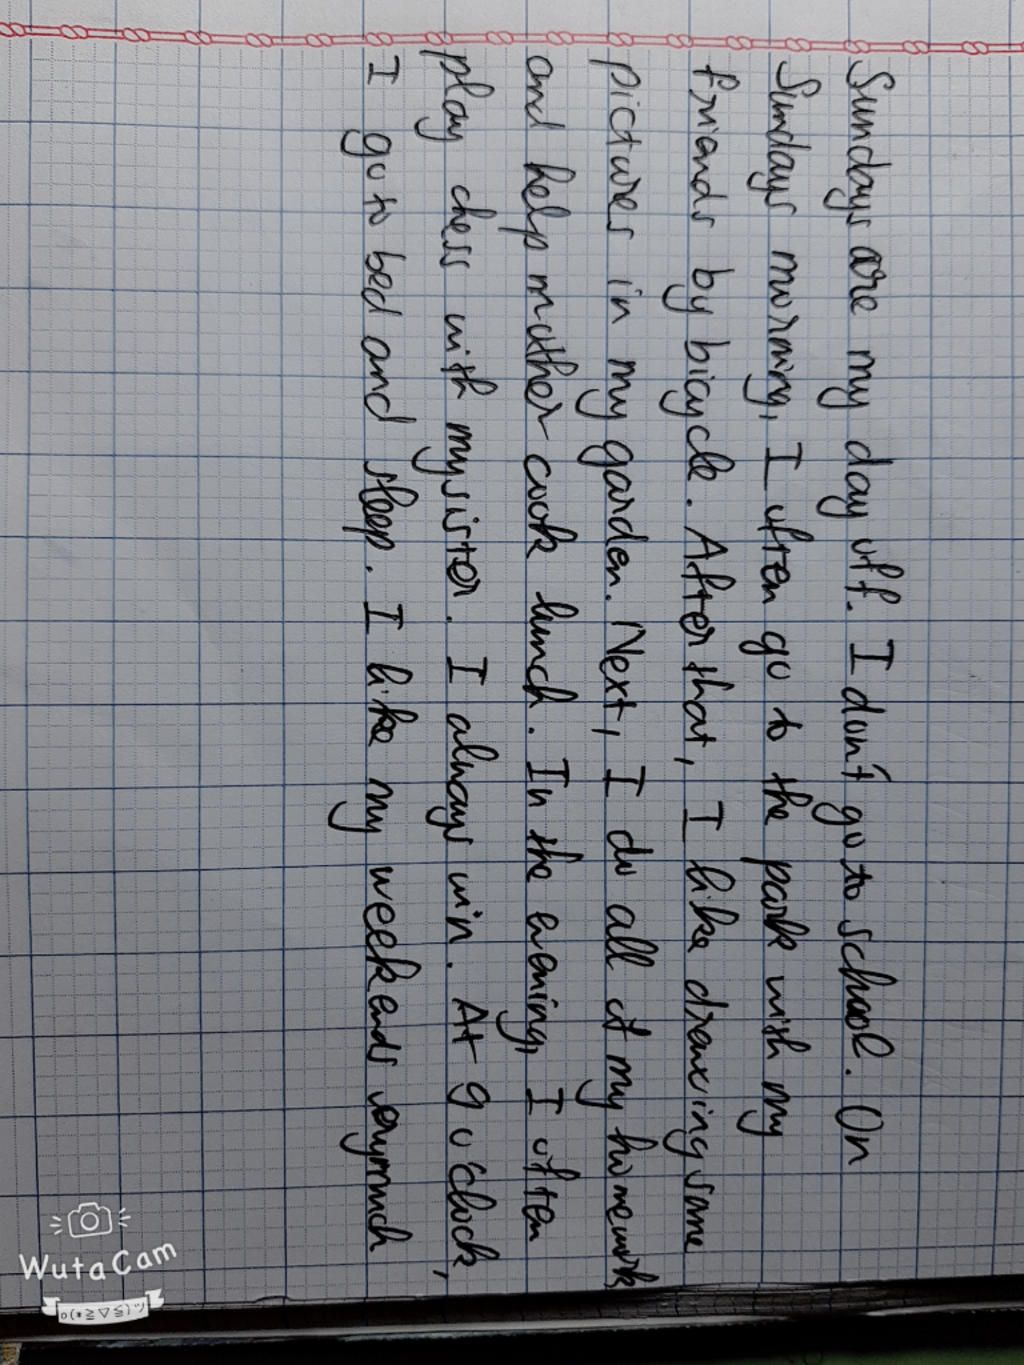 Sundays are my day off. I don't go to school. On
Sundays morning, I often go to the park with my
friends by bicycle. After that, I like drawing some
pictures in my garden. Next, I do all of my homework
and help mother cook lunch. In the evening, I often
play chess with my sister. I always win. At 9 o'clock,
I go to bed and sleep. I like my weekends very much
WutaCam
o(*≧▽≦)ツ